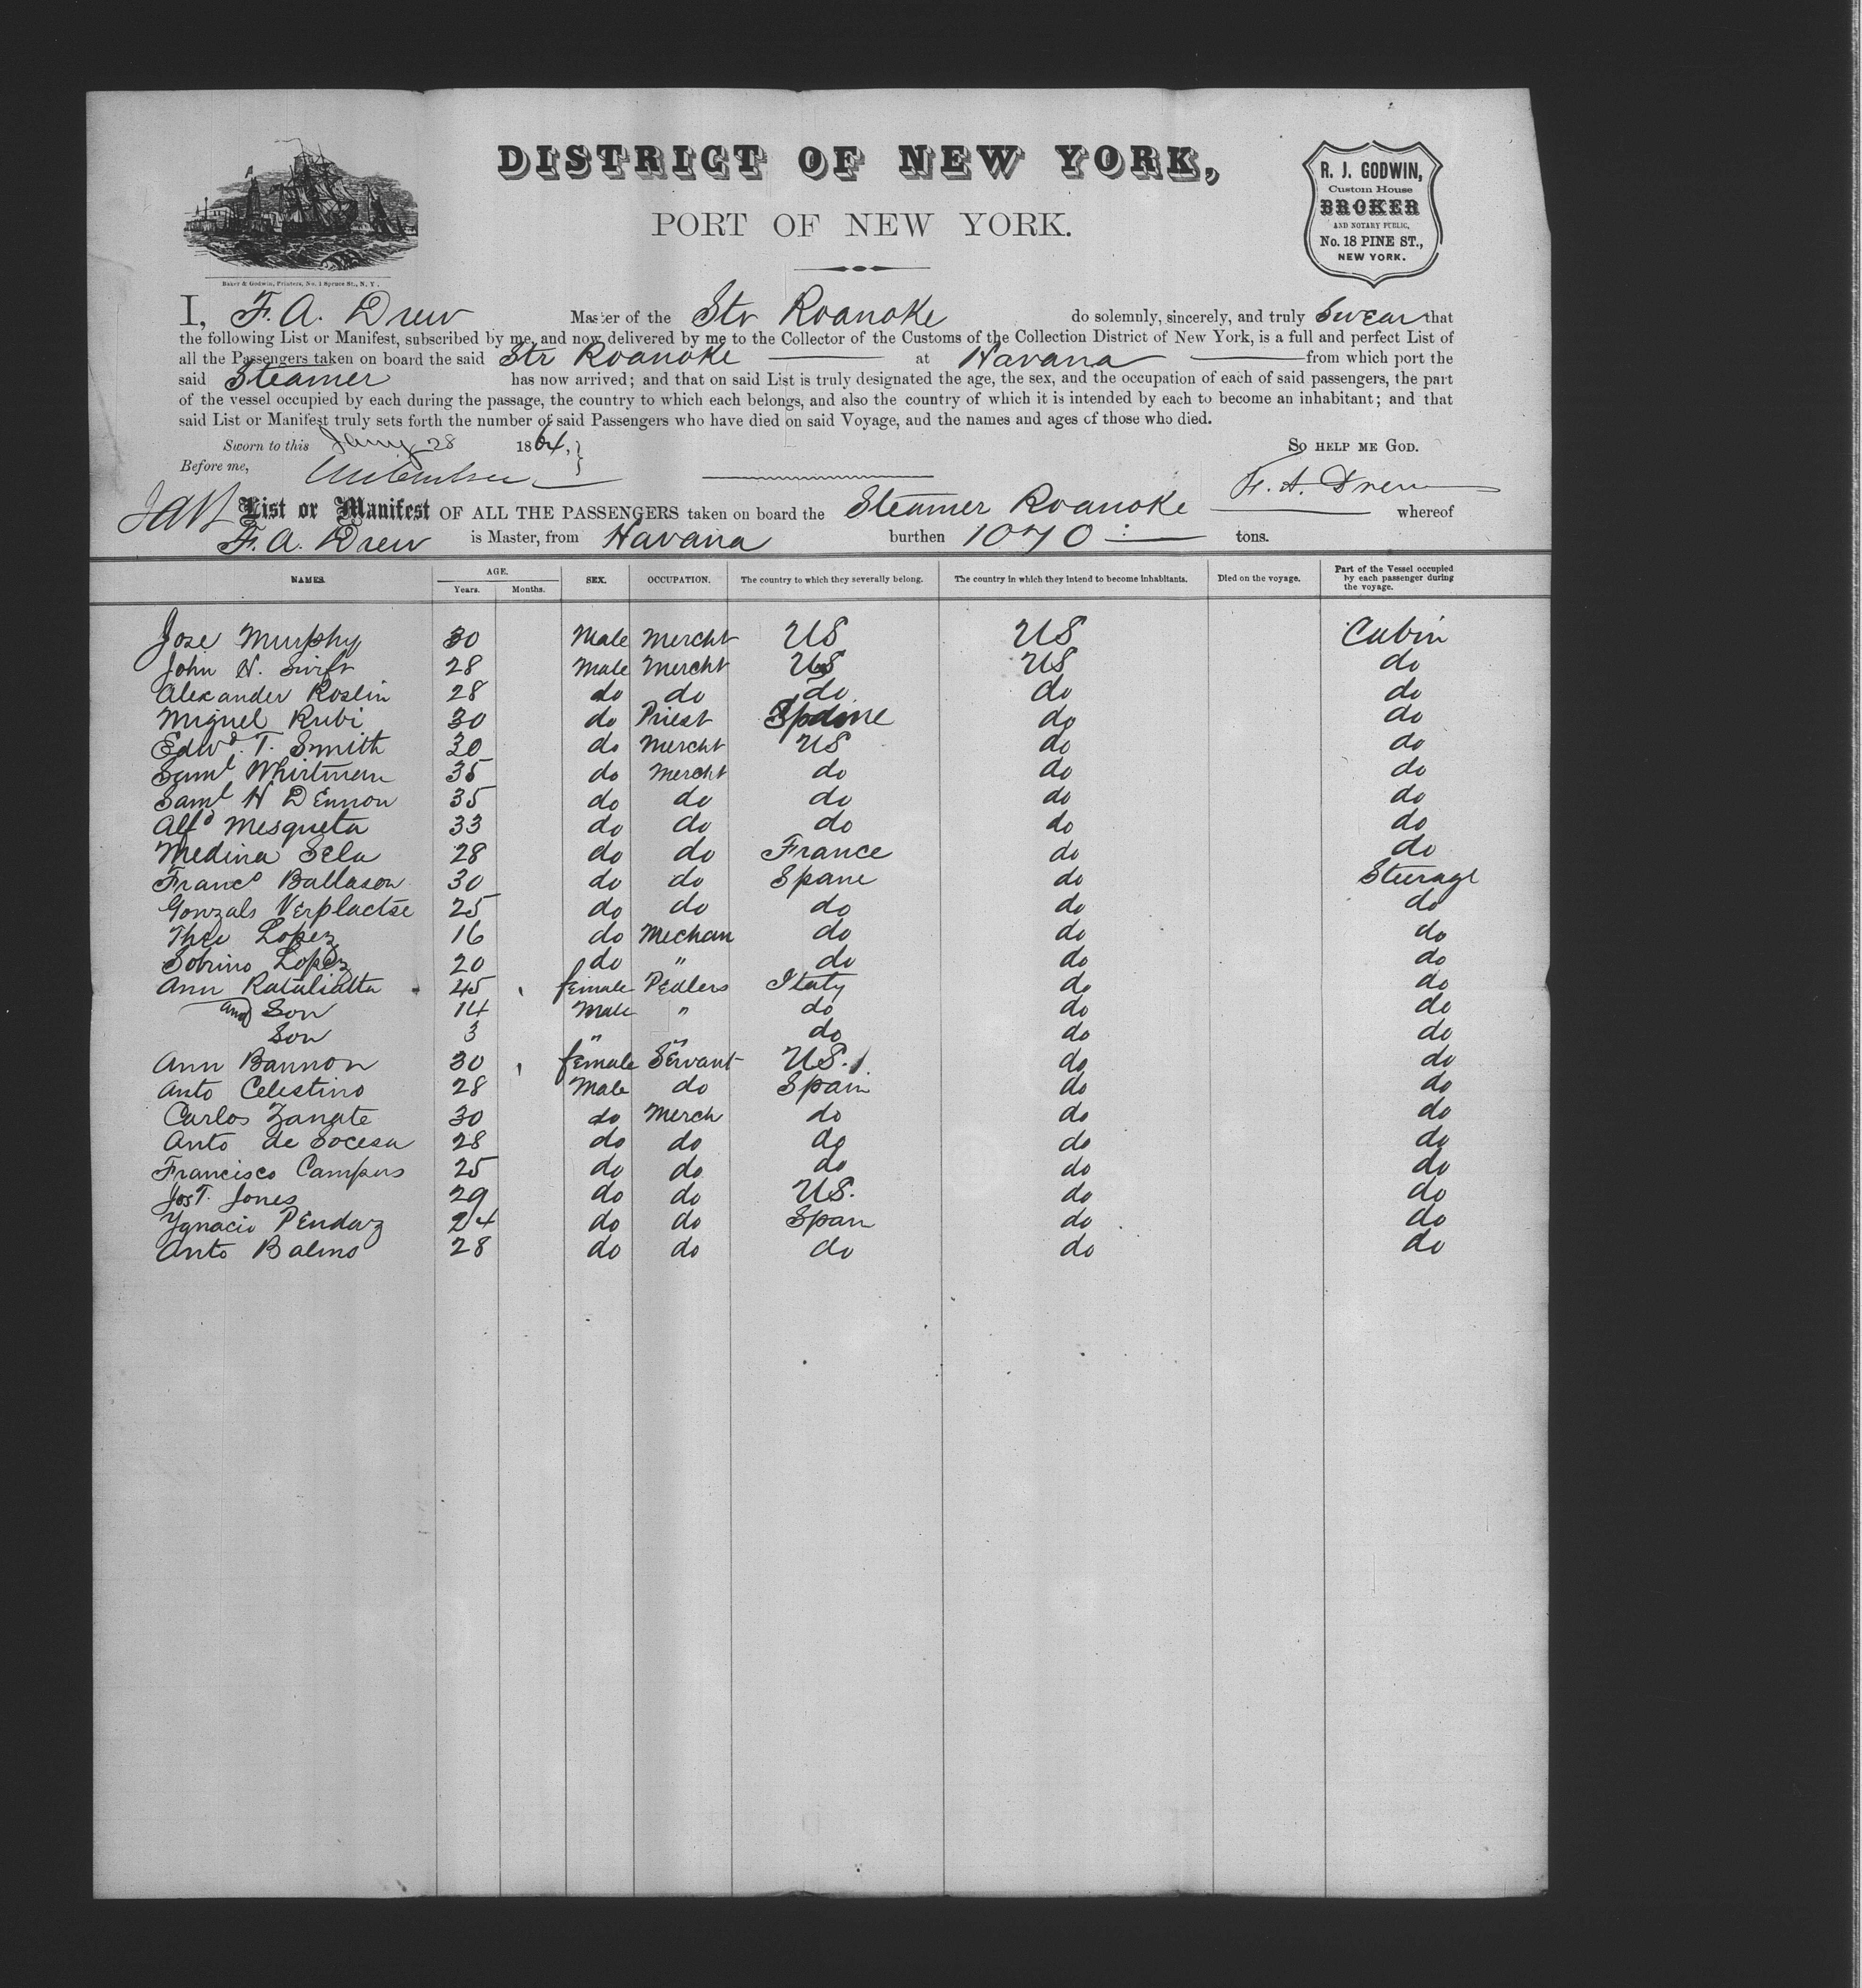 DISTRICT OF NEW YORK,
PORT OF NEW YORK.
R. J. GODWIN,
Custom House
BROKER
AND NOTARY PUBLIC,
No. 18 PINE ST.,
NEW YORK.
Baker & Godwin, Printers, No. 1 Spruce St., N. Y.
I, F. A. Drew Master of the Str Roanoke do solemnly, sincerely, and truly Swear that
the following List or Manifest, subscribed by me, and now delivered by me to the Collector of the Customs of the Collection District of New York, is a full and perfect List of
all the Passengers taken on board the said Str Roanoke at Havana from which port the
said Steamer has now arrived; and that on said List is truly designated the age, the sex, and the occupation of each of said passengers, the part
of the vessel occupied by each during the passage, the country to which each belongs, and also the country of which it is intended by each to become an inhabitant; and that
said List or Manifest truly sets forth the number of said Passengers who have died on said Voyage, and the names and ages of those who died.
Sworn to this Jany 28 1864, So HELP ME GOD.
Before me,
F. A. Drew
List or Manifest OF ALL THE PASSENGERS taken on board the Steamer Roanoke whereof
F. A. Drew is Master, from Havana burthen 1070 tons.
NAMES. AGE. Years. Months. SEX. OCCUPATION. The country to which they severally belong. The country in which they intend to become inhabitants. Died on the voyage. Part of the Vessel occupied by each passenger during the voyage.
Jose Murphy 30 Male Mercht US US Cabin
John H. Swift 28 Male Mercht US US do
Alexander Roslin 28 do do do do do
Miguel Rubi 30 do Priest Spaine do do
Edwd. T. Smith 30 do Mercht US do do
Saml Whitman 35 do Mercht do do do
Saml H DEnnon 35 do do do do do
Alfd Mesqueta 33 do do do do do
Medina Sela 28 do do France do do
Franco Ballason 30 do do Spane do Steerage
Gonzals Verplactse 25 do do do do do
Lopez 16 do Mechan do do do
Sobrino Lopez 20 do " do do do
Ann Rataliatta 45 female Pedlers Italy do do
and Son 14 Male " do do do
Son 3 " " do do do
Ann Bannon 30 female Servant US. do do
Anto Celestino 28 Male do Spain do do
Carlos Zangte 30 do Merch do do do
Anto de Socesa 28 do do do do do
Francisco Campus 25 do do do do do
Jos T. Jones 29 do do US. do do
Ygnacio Pendaz 24 do do Span do do
Anto Balmo 28 do do do do do